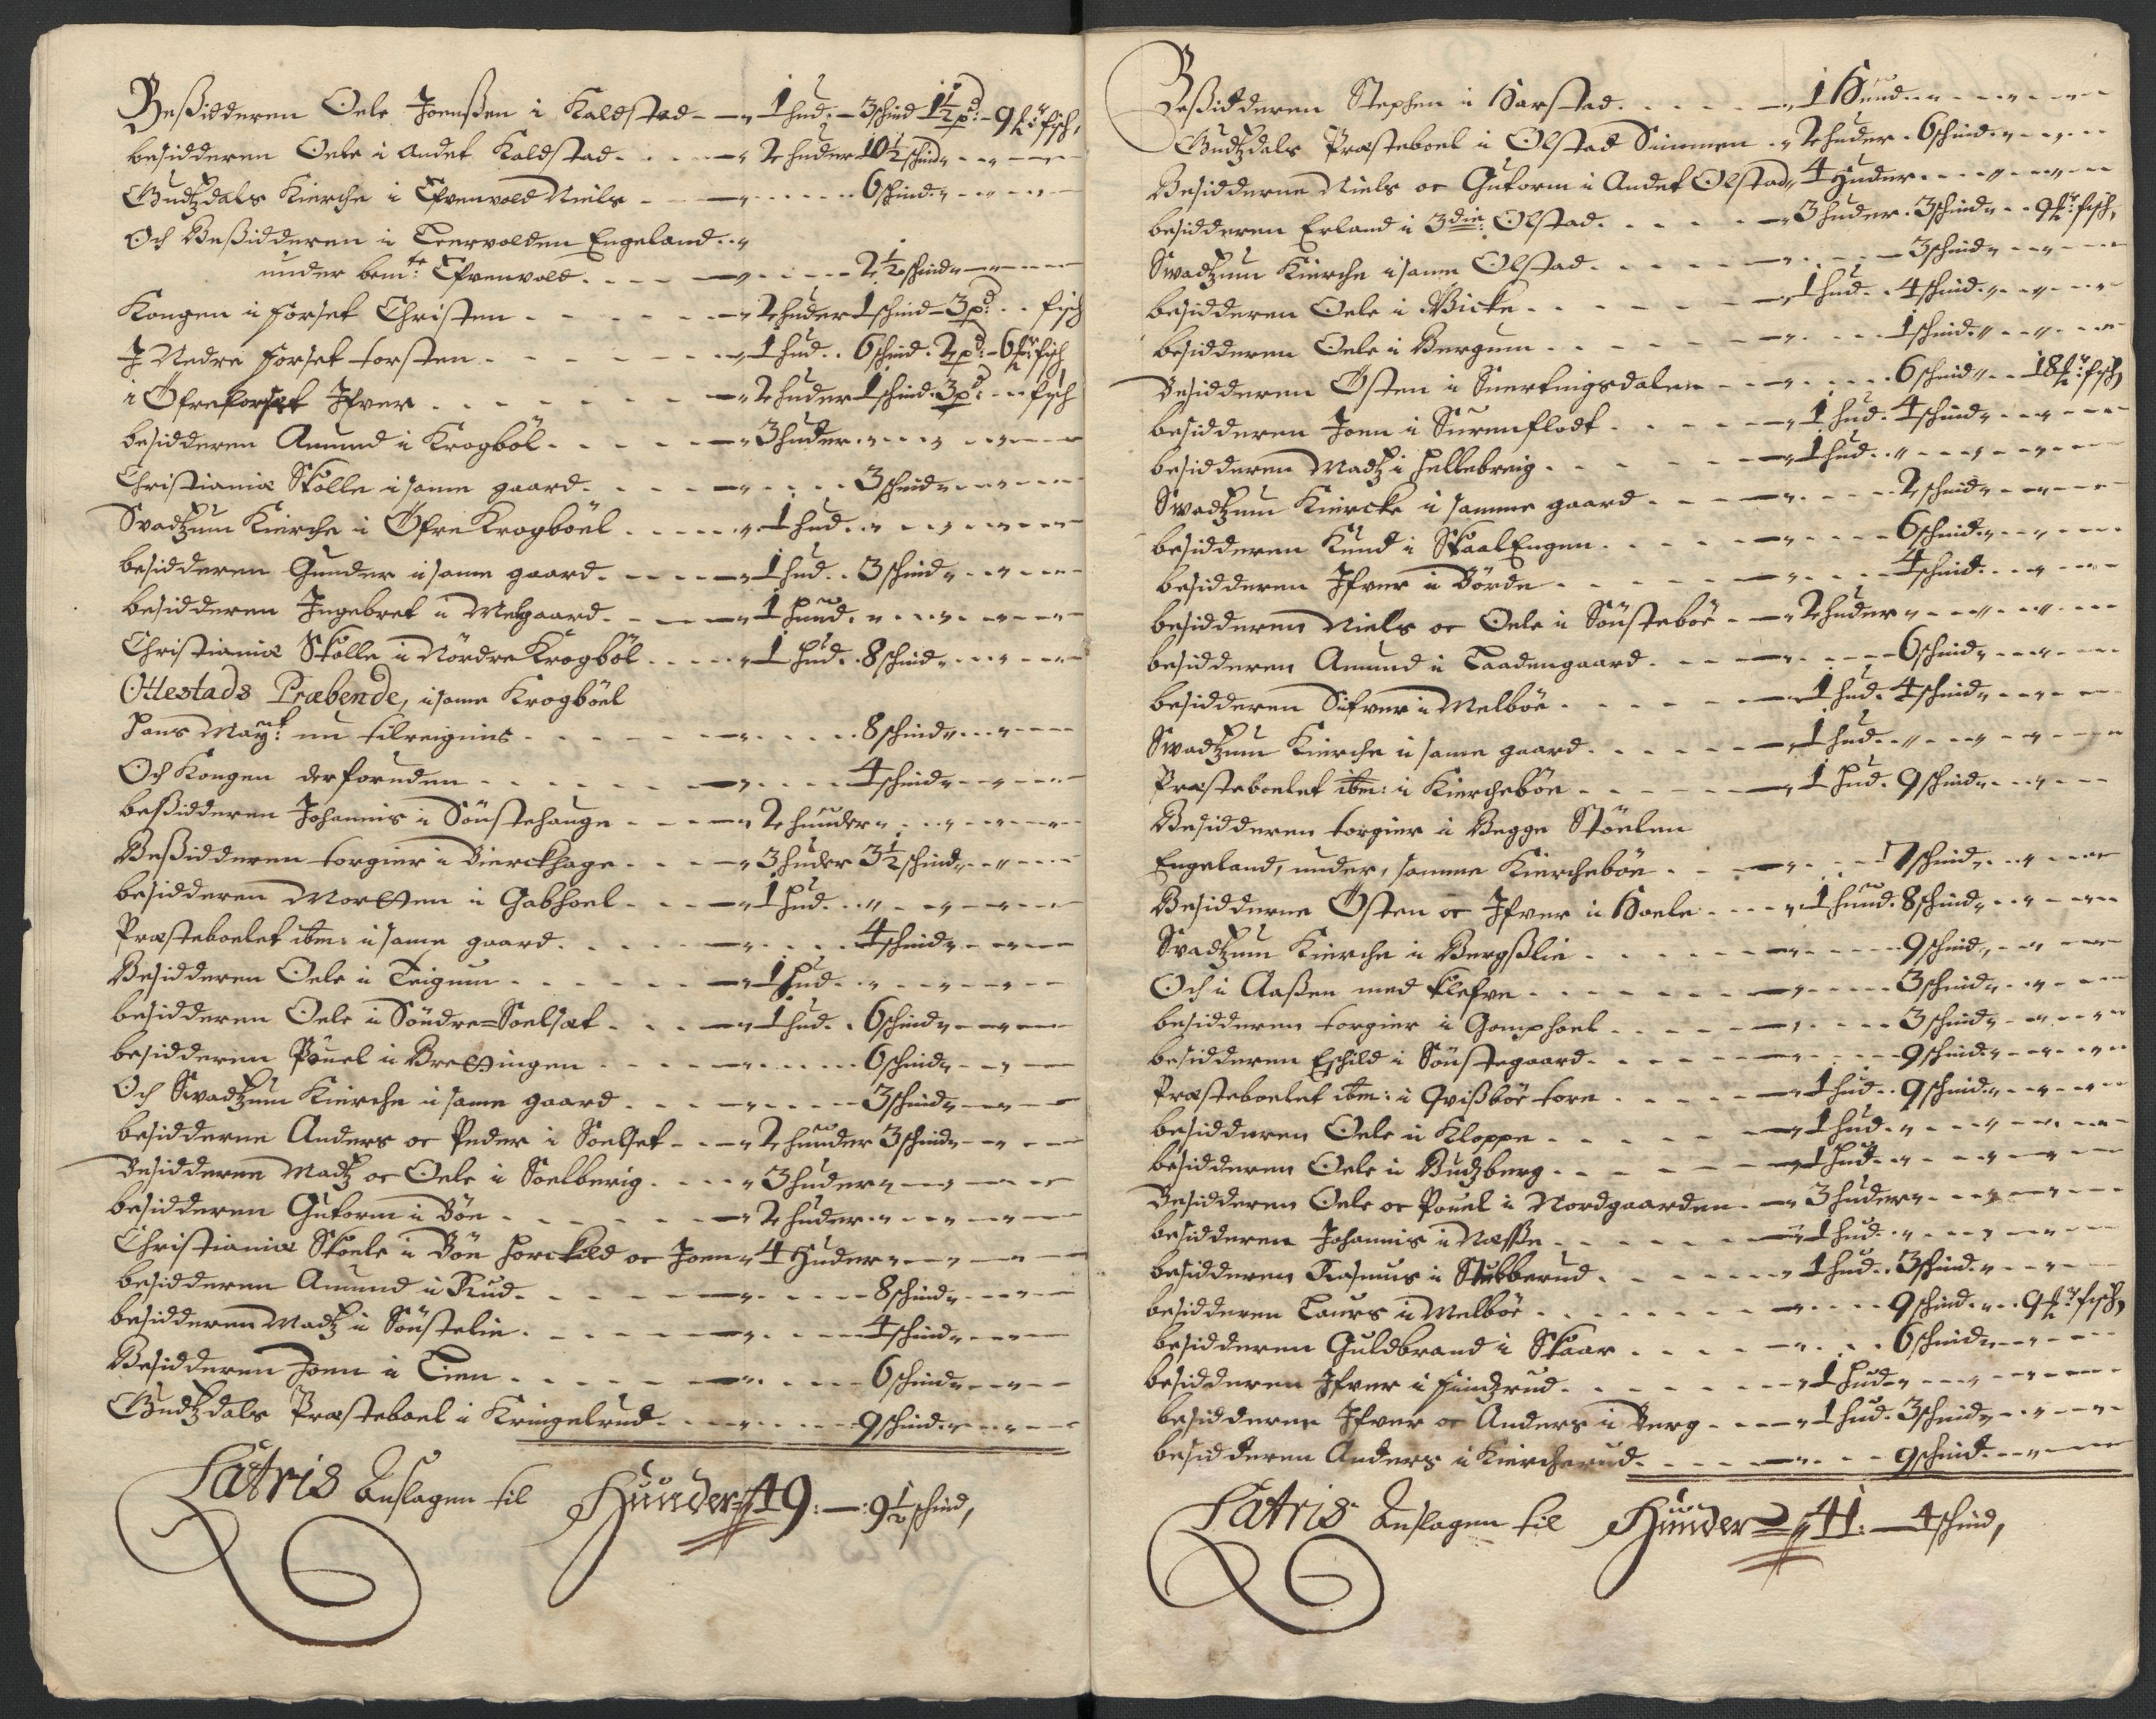 Beßidderen Oele Joenßen i Kaldstad - - „ 1 hud - 3 schind 1½ pd: - 9 ℔r: fisch,
besidderen Oele i Andet Kaldstad . . . . „ 2 huder 10½ schind „ - - „ - - -
Gudtzdals Kierche i Efvenvold Niels - - - „ - - - - 6 schind „ - - „ - -
Och Beßidderen i Teervolden Engeland . . „
under bemte: Efvenvold . . . . - „ . . - - 2½ schind „ - „ - - -
Kongen i Forset Christen - - - - - - „ 2 huder 1 schind - 3 pd: . . fisch
J Nedre Forset torsten . - - - - - - „ 1 hud . . 6 schind . 2 pd: - 6 ℔r: fisch
i Öfreforset Jfver . . . . - - - „ 2 huder 1 schind . 3 pd: - - fisch
besidderen Amund i Krogböl . . . . - - „ 3 huder „ - - „ - - - -
Christiania Skolle i same gaard . . . - „ . . . . 3 schind „ - - „ - - -
Svadtzum Kierche i Öfre Krogböel . . . . „ 1 hud . „ - - „ - - - -
besidderen Gunder i same gaard . - - - - „ 1 hud . . 3 schind „ - - „ - - -
besidderen Jngebret i Melgaard . - - - - „ 1 hund . „ - - „ - - - -
Christiania Skolle i Nördre Krogböl . . . . „ 1 hud . . 8 schind „ - - - - -
Ottestads Præbende, i same Krogböel
Hans Mayt: nu tilreignis . . - - - - - „ . . . . 8 schind „ - - „ - - -
Och Kongen derforuden . . . . . - - „ . . . . 4 schind „ - - „ - - -
beßidderen Johannis i Sönstehauge - - - - „ 2 hunder „ . - - „ - - - -
Beßidderen torgier i Bierckhage . - - - „ 3 huder 3½ schind „ - - „ - - -
besidderen Mortten i Gabhoel - - - - „ 1 hud . . „ - - „ - - - -
Præsteboelet ibm: i same gaard . . . . - „ . . . . 4 schind „ - - - - -
Besidderen Oele i Teigum . . . . - - - „ 1 hud „ - - „ - - - -
besidderen Oele i Söndre-Soelsæt . . . - „ 1 hud . . 6 schind „ - - - -
besidderen Pouel i Brettingen . . . . - „ . . . . 6 schind „ - - „ - -
Och Svadtzum Kierche i same gaard . . . - „ . . . . 3 schind „ - - „ - -
besidderne Anders oc Peder i Soelset - - - „ 2 hunder 3 schind „ - - „ - -
Besidderne Madtz oc Oele i Soelberig . - - - „ 3 huder „ - - „ - - -
besidderen Gutorm i Böe . . . . - - - „ 2 huder „ - - „ - - -
Christiania Skoele i Böe Horckild oc Joen „ 4 Huder „ - - „ - - -
besidderen Amund i Rud . . . . - - - „ . . . . 8 schind „ - - - -
besidderen Madtz i Sönstelie . . . . - - „ . . . . 4 schind „ - - - -
Besidderen Joen i Lien . . . . . - - „ . . . . 6 schind „ - - „ - -
Gudtzdals Præsteboel i Kringelrud . . - - „ . . . . 9 schind „ - - „ - -
Latris Anslagen til Hunder 49: — 9½ schind,
Beßidderen Stephen i Harstad . . . . - „ 1 Hund . . „ - - - „ - - -
Gudtzdals Præsteboel i Olstad Simmen . „ 2 huder . 6 schind „ - - „ - -
Besidderne Niels oc Gutorm i Andet Olstad „ 4 Huder - - - - „ - - -
besidderen Erland i 3die: Olstad . . . . - „ 3 huder . 3 schind „ . . 9 ℔r: fisch,
Svadtzum Kierche i same Olstad . . . . - „ . . . - 3 schind „ - - „ - -
besidderen Oele i Vicke . . . . . - - „ 1 hud . . 4 schind „ - - „ - -
besidderen Oele i Bergum . . . . . - - „ . . . . 1 schind „ - - „ - -
Besidderen Östen i Suertnigsdalen - - - „ . . . . 6 schind „ - - 18 ℔r: fisch,
besidderen Joen i Surenflodt . . . . . - „ 1 hud . 4 schind „ - - „ - -
besidderen Madtz i Hellebreig . . . . . - „ 1 hud . . „ - - - „ - - -
Svadtzum Kiercke i samme gaard . . . - „ . . . . 2 schind „ - - „ - -
besidderen Knud i Skaal Engen . . . . - „ . . . . 6 schind „ - - „ - -
besidderen Jfver i Börde . . . . . - - „ . . . . 4 schind . - - „ - -
besidderen Niels oc Oele i Sönsteböe - - „ 2 huder „ - - - „ - - -
besidderen Amund i Laadengaard . . - - „ . . . . 6 schind „ - - „ - -
besidderen Sifver i Melböe . . . . . - - „ 1 hud . 4 schind „ - - „ - -
Svadtzum Kierche i same gaard . . . . - „ 1 hud . . „ - - - „ - - -
Præsteboelet ibm: i Kiercheböe . . . - - „ 1 hud . 9 schind „ - - „ - -
Besidderen torgier i Begge Stöelen
Engeland, under, samme Kiercheböe . . - „ . . . . 7 schind „ - - „ - -
Besidderne Östen oc Jfver i Hoele . . . - „ 1 hund . 8 schind „ - - „ - -
Svadtzum Kierche i Bergßlie . . . . . - „ . . . . 9 schind „ - - „ - -
Och i Aaßen med Klefve . . . . . - - „ . . . . 3 schind „ - - „ - -
besidderen torgier i Gomphoel . . . . - „ . . . . 3 schind „ - - „ - -
besidderen Eschild i Sönstegaard . . . . - „ . . . . 9 schind „ - - „ - -
Præsteboelet ibm: i Qvißböe tore . . . . - „ 1 hud . . 9 schind „ - - „ - -
besidderen Oele i Kloppe . . . . . - - „ 1 hud . „ - - - „ - - -
besidderen Oele i Budzberg . . . . . - - „ 1 hud . „ - - - „ - - -
Besidderen Oele oc Pouel i Nordgaarden . - „ 3 huder „ - - - „ - - -
besidderen Johannis i Næsse . . . . . - - „ 1 hud . . „ - - - „ - - -
besidderen Rasmus i Stubberud . . . . - - „ 1 hud . . 3 schind „ - - „ - -
besidderen Laurs i Melböe . . . . . - - „ . . . . 9 schind „ . . 9 ℔r: fisch,
besidderen Guldbrand i Skaar . . . . - „ . . . . 6 schind „ - - „ - -
besidderen Jfver i Findzrud . . . . . - - „ 1 hud „ - - - „ - - -
besidderne Jfver oc Anders i Berg . . - - „ 1 hud . 3 schind „ - - „ - -
besidderen Anders i Kiercherud . . . . - „ . . . 9 schind . - - „ - -
Latris Anslagen til Hunder 41: — 4 schind,